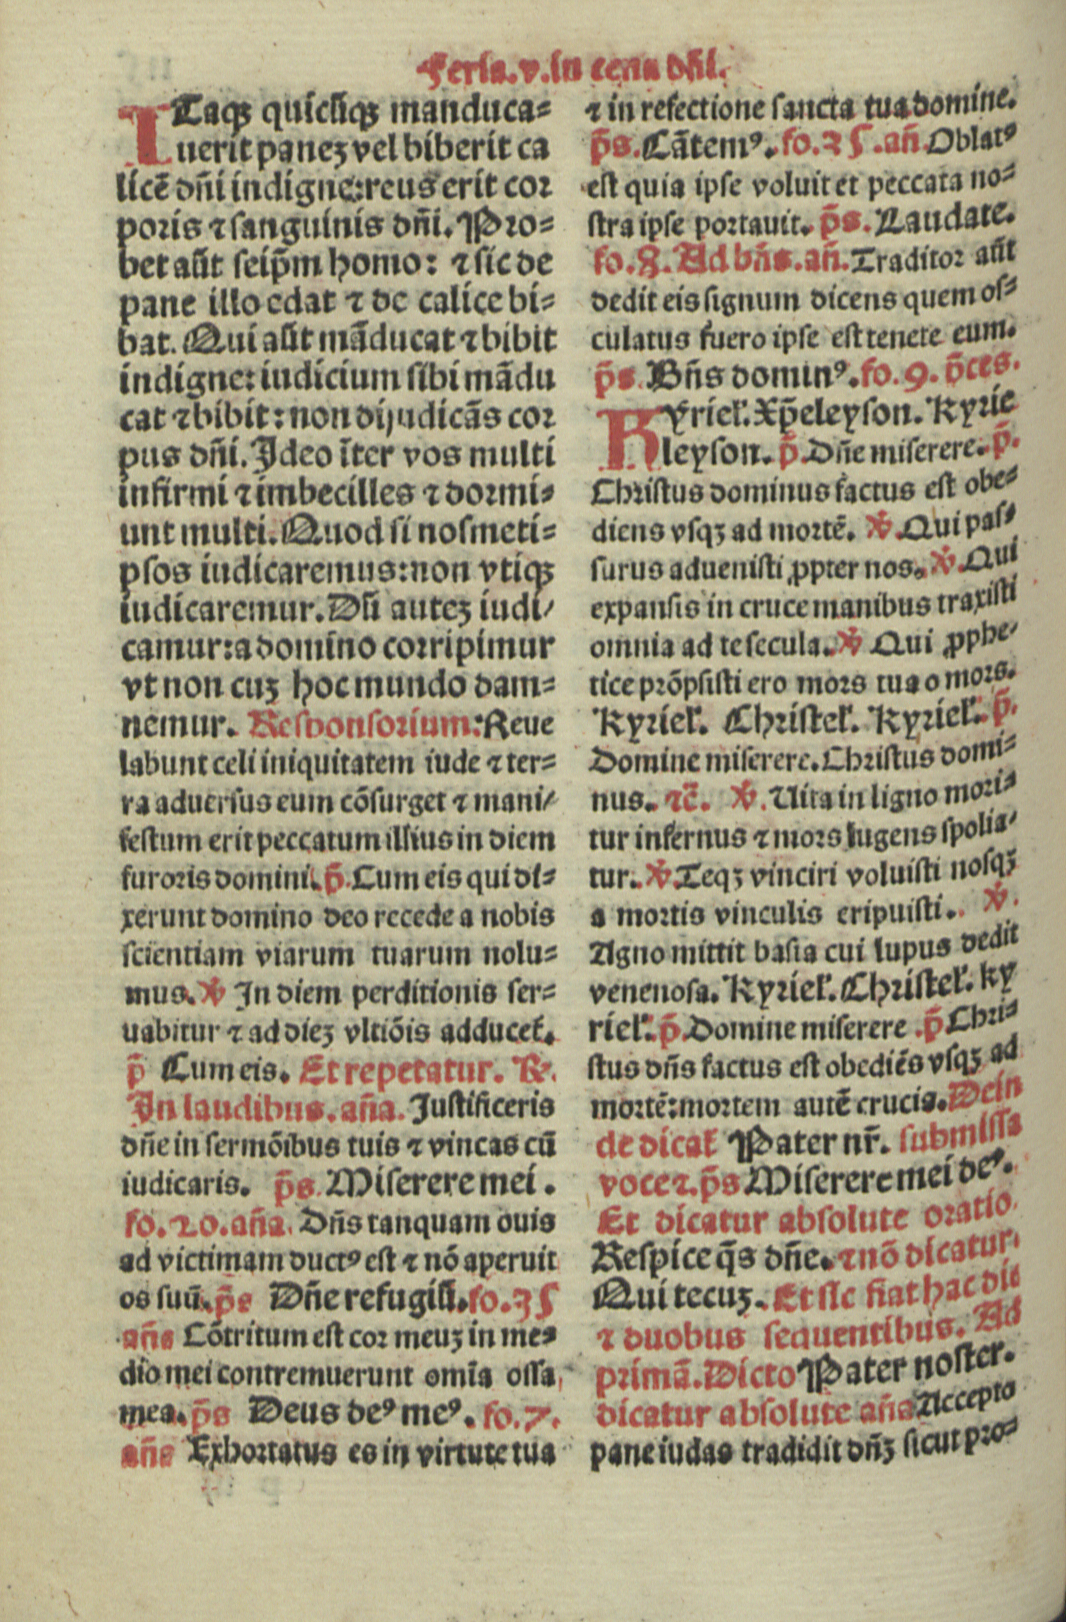 Feria.v.in cena dñi.
ITaqꝫ quicũqꝫ manduca-
uerit paneꝫ vel biberit ca
licẽ dñi indigne:reus erit cor
poris ⁊ sanguinis dñi. Pro-
bet aũt seip̃m homo: ⁊ sic de
pane illo edat ⁊ de calice bi-
bat. Qui aũt mãducat ⁊ bibit
indigne: iudicium sibi mãdu
cat ⁊ bibit: non dijudicãs cor
pus dñi. Ideo ĩter vos multi
infirmi ⁊ imbecilles ⁊ dormi-
unt multi. Quod si nosmeti-
psos iudicaremus: non vtiqꝫ
iudicaremur. Dũ auteꝫ iudi/
camur: a domino corripimur
vt non cuꝫ hoc mundo dam-
nemur. Responsorium: Reue
labunt celi iniquitatem iude ⁊ ter-
ra aduersus eum cõsurget ⁊ mani/
festum erit peccatum illius in diem
furoris domini. p̃. Cum eis qui di-
xerunt domino deo recede a nobis
scientiam viarum tuarum nolu-
mus. ℣ In diem perditionis ser-
uabitur ⁊ ad dieꝫ vltiõis adduceť.
p̃ Cum eis. Et repetatur. ℟.
In laudibus. aña. Justificeris
dñe in sermõibus tuis ⁊ vincas cũ
iudicaris. p̃s. Miserere mei.
fo.20.aña. Dñs tanquam ouis
ad victimam ductꝰ est ⁊ nõ aperuit
os suũ. p̃s Dñe refugiũ. fo.35
aña Cõtritum est cor meuꝫ in me-
dio mei contremuerunt omĩa ossa
mea. p̃s Deus deꝰ meꝰ. fo.7.
aña Exhortatus es in virtute tua
⁊ in refectione sancta tua domine.
p̃s. Cãtemꝰ. fo.25.añ. Oblatꝰ
est quia ipse voluit et peccata no-
stra ipse portauit. p̃s. Laudate.
fo.8. Ad bñs.añ. Traditor aũt
dedit eis signum dicens quem os-
culatus fuero ipse est tenete eum.
p̃s. Bñs dominꝰ. fo.9. p̃ces.
KYrieľ. Xp̃eleyson. Kyrie
leyson. p̃. Dñe miserere. p̃.
Christus dominus factus est obe-
diens vsqꝫ ad mortẽ. ℣. Qui pas-
surus aduenisti ꝓpter nos. ℣. Qui
expansis in cruce manibus traxisti
omnia ad te secula. ℣ Qui ꝓphe-
tice prõpsisti ero mors tua o mors.
Kyrieľ. Christeľ. Kyrieľ. p̃.
Domine miserere. Christus domi-
nus. ⁊c̃. ℣. Uita in ligno mori-
tur infernus ⁊ mors lugens spolia-
tur. ℣. Teqꝫ vinciri voluisti nosqꝫ
a mortis vinculis eripuisti. ℣.
Agno mittit basia cui lupus dedit
venenosa. Kyrieľ. Christeľ. ky
rieľ. p̃. Domine miserere. p̃ Chri-
stus dñs factus est obediẽs vsqꝫ ad
mortẽ: mortem autẽ crucis. Dein
de dicať Pater nr̃. submissa
voce ⁊. p̃s Miserere mei deꝰ.
Et dicatur absolute oratio.
Respice q̃s dñe. ⁊ nõ dicatur.
Qui tecuꝫ. Et sic fiat hac die
⁊ duobus sequentibus. Ad
primã. Dicto Pater noster.
dicatur absolute aña Accepto
pane iudas tradidit dñꝫ sicut pro-